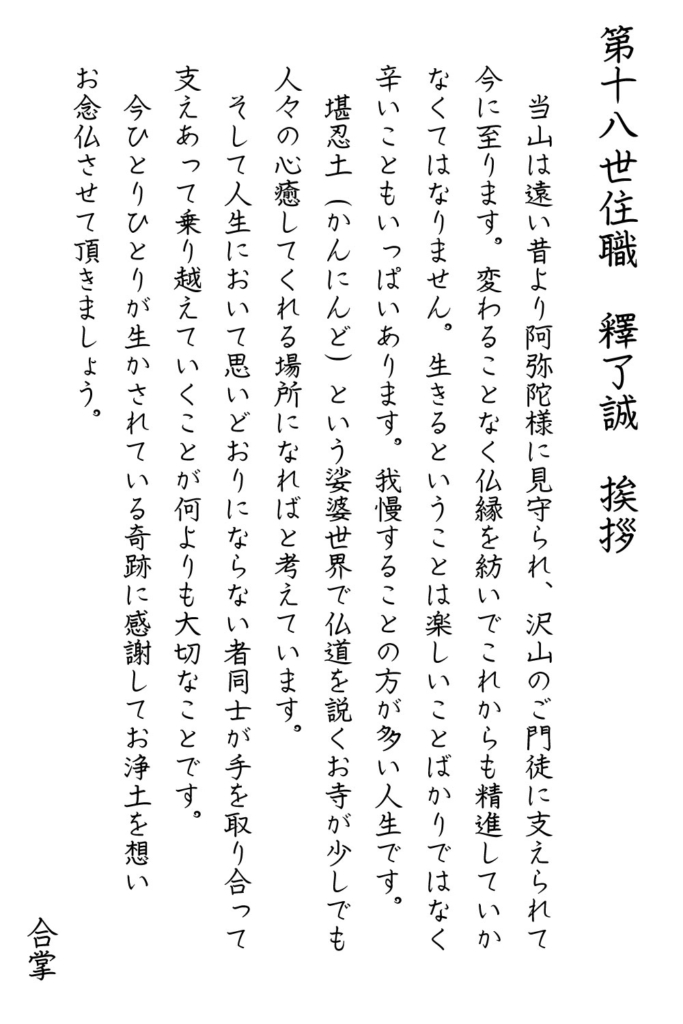 第十八世住職　釋了誠　挨拶
当山は遠い昔より阿弥陀様に見守られ、沢山のご門徒に支えられて
今に至ります。変わることなく仏縁を紡いでこれからも精進していか
なくてはなりません。生きるということは楽しいことばかりではなく
辛いこともいっぱいあります。我慢することの方が多い人生です。
堪忍土（かんにんど）という娑婆世界で仏道を説くお寺が少しでも
人々の心癒してくれる場所になればと考えています。
そして人生において思いどおりにならない者同士が手を取り合って
支えあって乗り越えていくことが何よりも大切なことです。
今ひとりひとりが生かされている奇跡に感謝してお浄土を想い
お念仏させて頂きましょう。
合掌